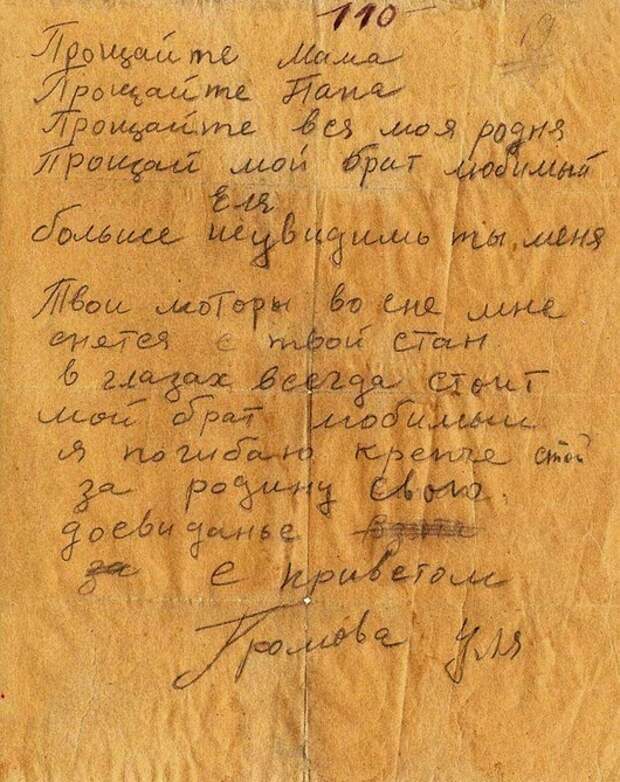 110
19
Прощайте Мама
Прощайте Папа
Прощайте вся моя родня
Прощай мой брат любимый
Еля
больше неувидишь ты меня
Твои моторы во сне мне
снется с твой стан
в глазах всегда стоит
мой брат любимый
я погибаю крепче стой
за родину свою.
досвиданье
за с приветом
Громова Уля